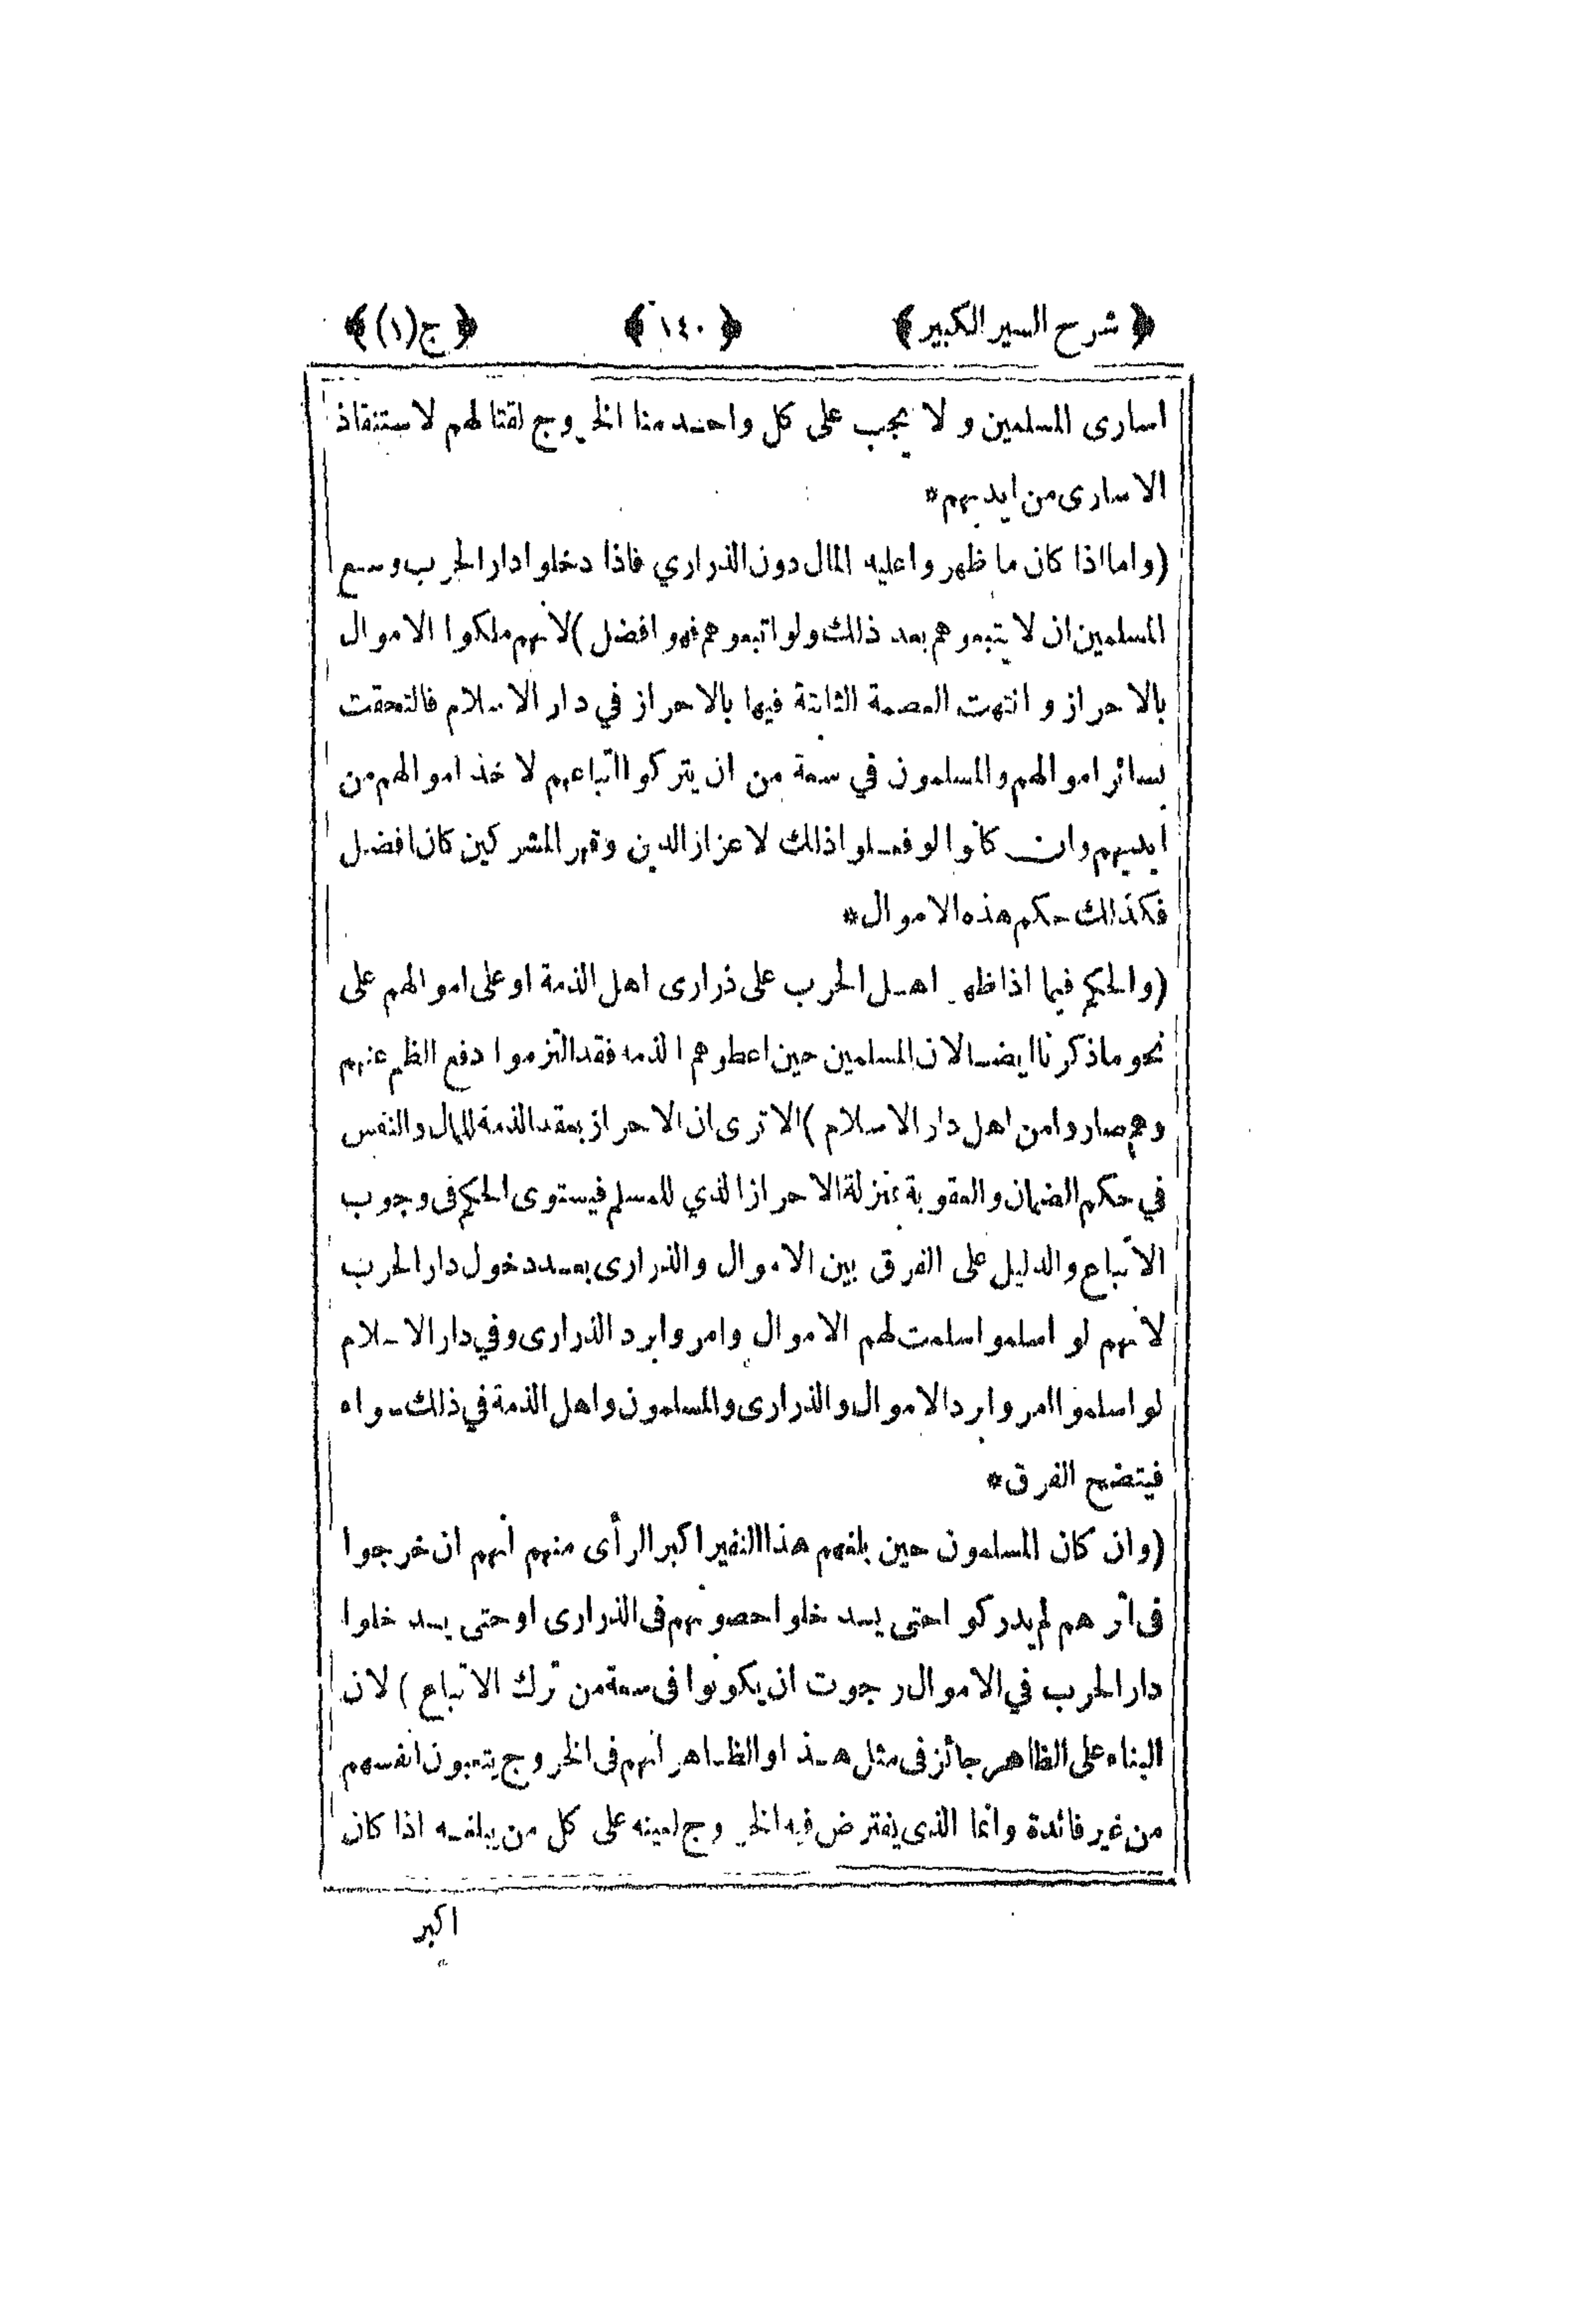 ﴿ شرح السير الكبير ﴾ ﴿ ١٤٠ ﴾ ﴿ ج (١) ﴾
اسارى المسلمين و لا يجب على كل واحد منا الخروج لقتالهم لاستنقاذ
الاسارى من ايديهم*
(واما اذا كان ما ظهر واعليه المال دون الذراري فاذا دخلوا دار الحرب وسع
المسلمين ان لا يتبعوهم بعد ذلك ولو اتبعوهم فهو افضل) لانهم ملكوا الاموال
بالاحراز و انتهت العصمة الثابتة فيها بالاحراز في دار الاسلام فالتحقت
بسائر اموالهم والمسلمون في سعة من ان يتركوا اتباعهم لاخذ اموالهم من
ايديهم وان كانوا لو فعلوا ذلك لاعزاز الدين وقهر المشركين كان افضل
فكذلك حكم هذه الاموال*
(والحكم فيما اذا ظهر اهل الحرب على ذرارى اهل الذمة او على اموالهم على
نحو ما ذكرنا ايضا لان المسلمين حين اعطوهم الذمه فقد التزموا دفع الظلم عنهم
وهم صاروا من اهل دار الاسلام) الا ترى ان الاحراز بعقد الذمة للمال والنفس
في حكم الضمان والعقوبة بمنزلة الاحراز الذي للمسلم فيستوى الحكم فى وجوب
الاتباع والدليل على الفرق بين الاموال والذرارى بعد دخول دار الحرب
لانهم لو اسلموا سلمت لهم الاموال وامروا برد الذرارى وفي دار الاسلام
لو اسلموا امروا برد الاموال والذرارى والمسلمون واهل الذمة في ذلك سواء
فيتضح الفرق*
(وان كان المسلمون حين بلغهم هذا النفير اكبر الرأى منهم انهم ان خرجوا
فى اثرهم لم يدركوا حتى يدخلوا حصونهم فى الذرارى او حتى يدخلوا
دار الحرب في الاموال رجوت ان يكونوا فى سعة من ترك الاتباع) لان
البناء على الظاهر جائز فى مثل هذا والظاهر انهم فى الخروج يتعبون انفسهم
من غير فائدة وانما الذى يفترض فيه الخروج لعينه على كل من يبلغه اذا كان
اكبر